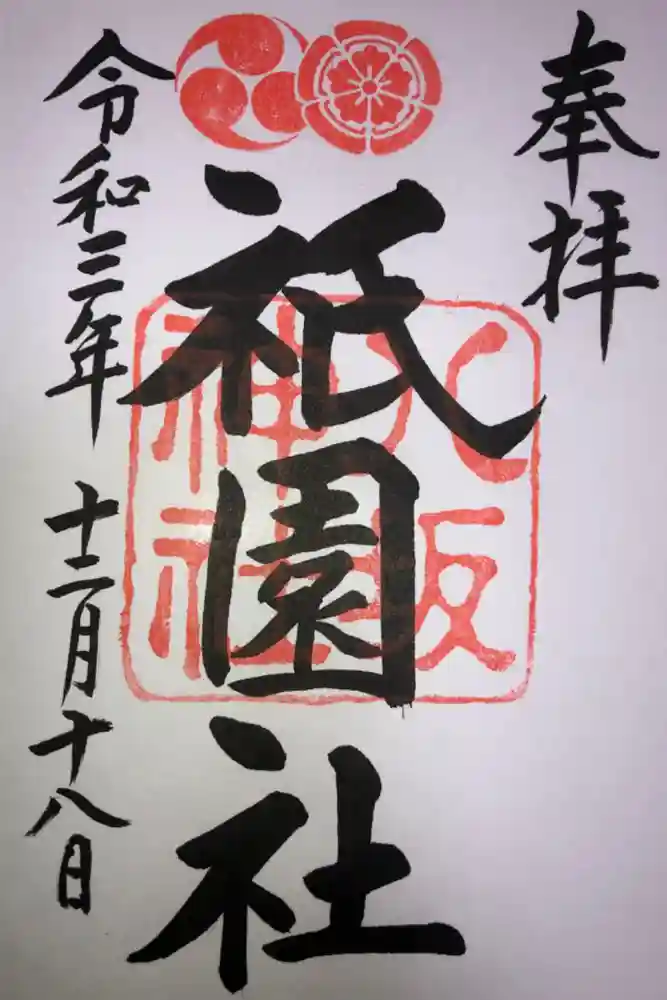 奉拝
八坂
神社
祇園社
令和三年
十二月十八日